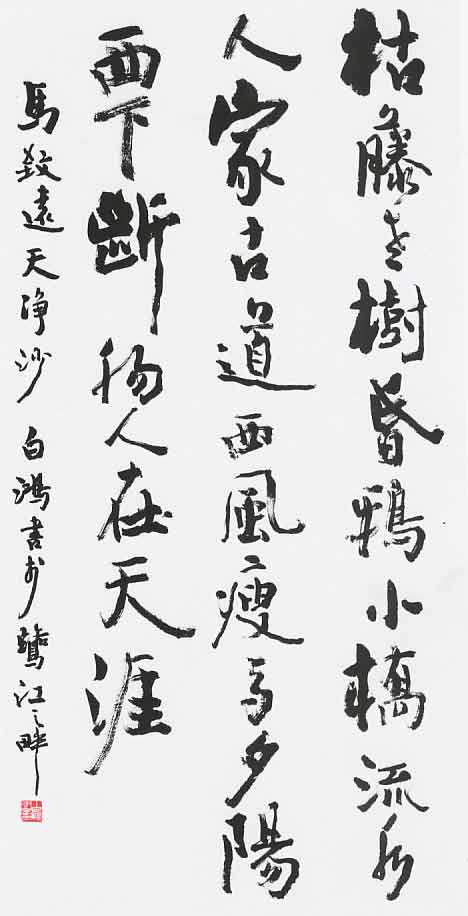 枯藤老樹昏鴉小橋流水
人家古道西風瘦馬夕陽
西下斷腸人在天涯
馬致遠天淨沙 白鴻書於鷺江之畔